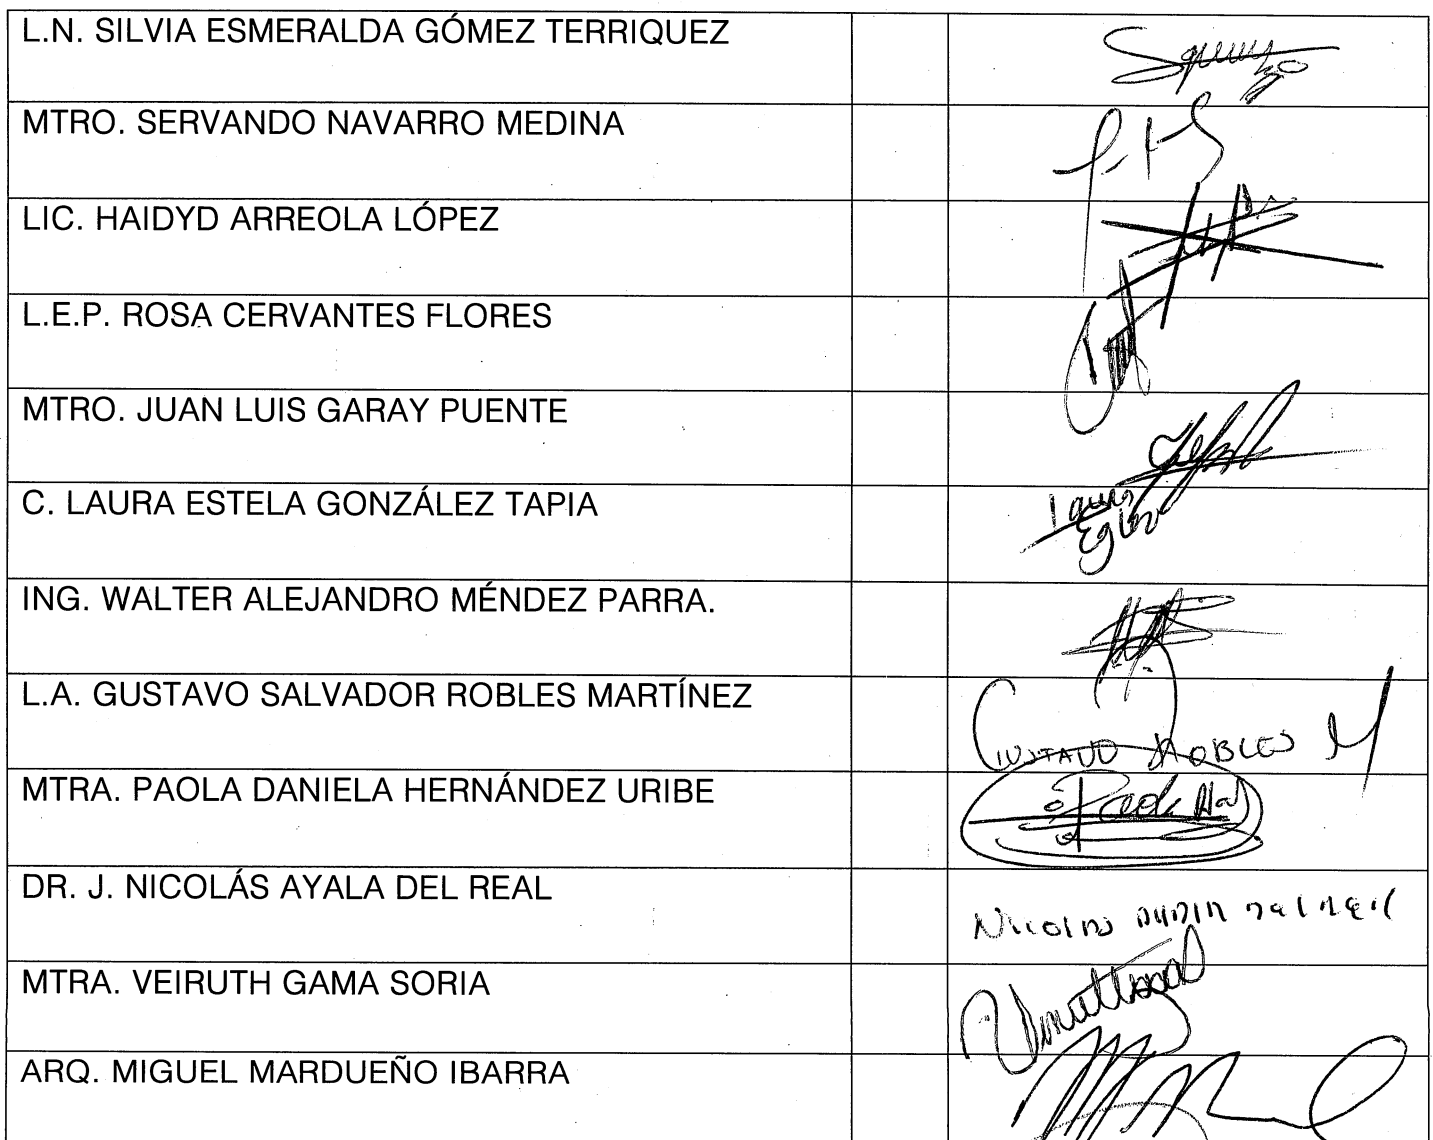 L.N. SILVIA ESMERALDA GÓMEZ TERRIQUEZ
MTRO. SERVANDO NAVARRO MEDINA
LIC. HAIDYD ARREOLA LÓPEZ
L.E.P. ROSA CERVANTES FLORES
MTRO. JUAN LUIS GARAY PUENTE
C. LAURA ESTELA GONZÁLEZ TAPIA
ING. WALTER ALEJANDRO MÉNDEZ PARRA.
L.A. GUSTAVO SALVADOR ROBLES MARTÍNEZ
GUSTAVO ROBLES M
MTRA. PAOLA DANIELA HERNÁNDEZ URIBE
DR. J. NICOLÁS AYALA DEL REAL
MTRA. VEIRUTH GAMA SORIA
ARQ. MIGUEL MARDUEÑO IBARRA